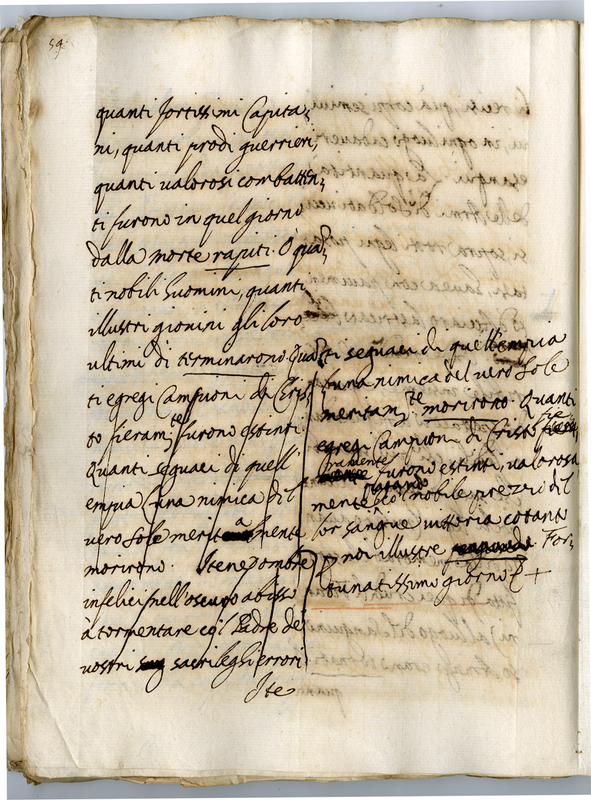 59.
quanti fortissimi Capita,
ni, quanti prodi guerrieri,
quanti valorosi combatten,
ti furono in quel giorno
dalla morte rapiti. O qua~
ti nobili huomini, quanti
illustri giovini gli loro
ultimi dì terminarono. Qua~
ti egregi Campioni di Cris,
to fieram.te furono estinti.
Quanti seguaci di quell'
empia Luna nimica del
vero Sole meritamente
morirono. Itene ò ombre
infelici nell'oscuro abisso
à tormentare co'l Padre de'
vostri sacrileghi errori
Ite
ti seguaci di quell'empia
Luna nimica del vero Sole
meritam.te morirono. Quanti
egregi Campioni di Cristo fie
ramente furono estinti, valorosa
mente co'l nobile prezzo del
lor sangue vittoria cotanto
p noi illustre For,
tunatissimo giorno +